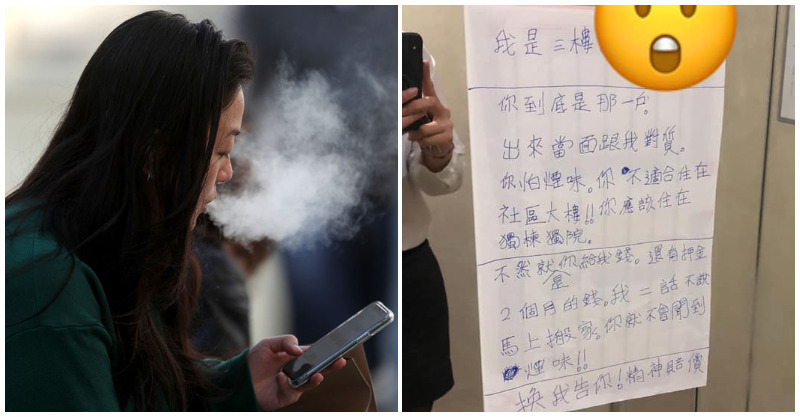 我是三樓
你到底是那一戶。
出來當面跟我對質。
你怕煙味。你不適合住在
社區大樓!!你應該住在
獨棟獨院。
不然就是你給我錢。還有押金
2個月的錢。我二話不說
馬上搬家。你就不會聞到
煙味!!
換我告你!精神賠償